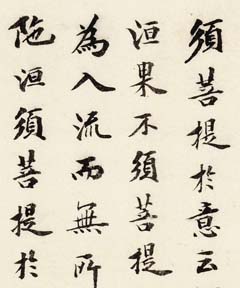 須菩提於意云
洹果不須菩提
為入流而無所
陁洹須菩提於